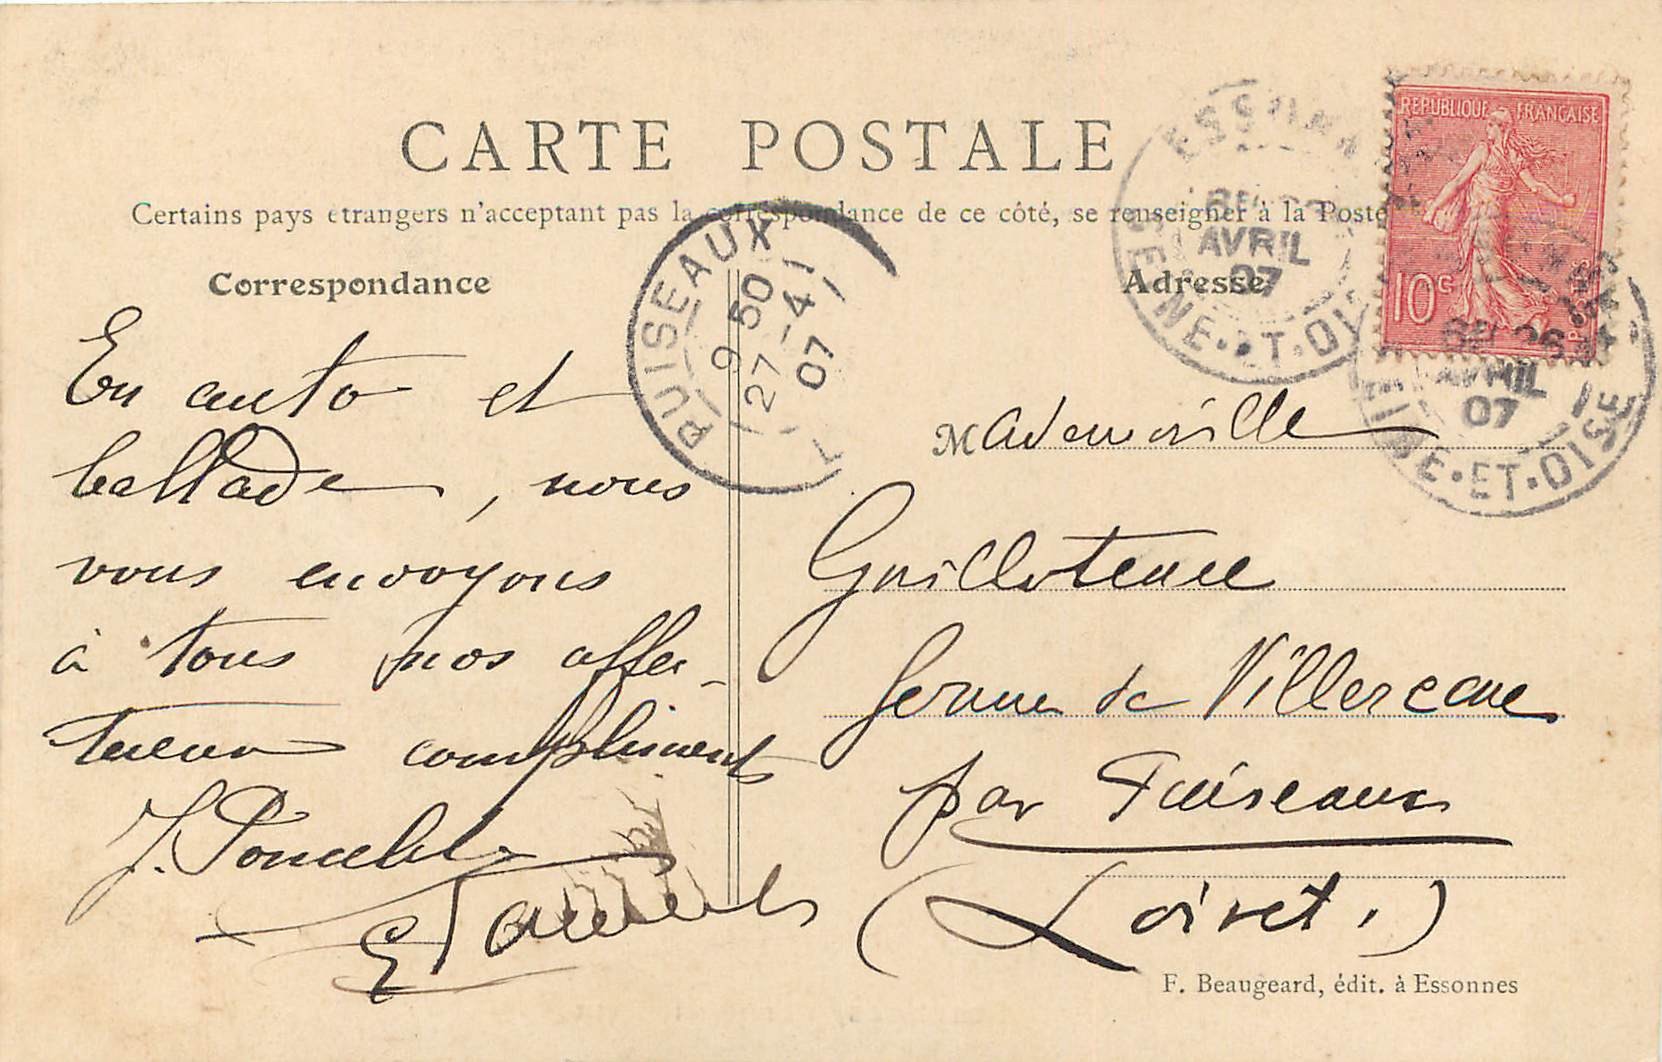 CARTE POSTALE
Certains pays étrangers n'acceptant pas la correspondance de ce côté, se renseigner à la Poste
Correspondance
En auto et
ballade, nous
vous envoyons
à tous nos affec-
tueux compliments
J. Poncelet
E
Adresse
Mademoiselle
Guilloteau
Ferme de Villereau
par Puiseaux
(Loiret.)
F. Beaugeard, édit. à Essonnes
PUISEAUX
9 50
27 -4
07
ESSONNES
AVRIL
07
SEINE·ET·OISE
REPUBLIQUE FRANÇAISE
10 C
POSTES
26
AVRIL
07
SEINE·ET·OISE